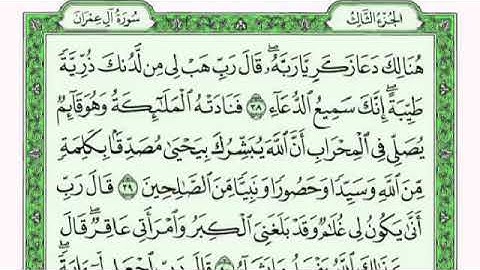 الجُزْءُ الثَّالِثُ
سُورَةُ آلِ عِمْرَانَ
هُنَالِكَ دَعَا زَكَرِيَّا رَبَّهُۥۖ قَالَ رَبِّ هَبْ لِى مِن لَّدُنكَ ذُرِّيَّةً
طَيِّبَةًۖ إِنَّكَ سَمِيعُ ٱلدُّعَآءِ ٣٨ فَنَادَتْهُ ٱلْمَلَٰٓئِكَةُ وَهُوَ قَآئِمٌ
يُصَلِّى فِى ٱلْمِحْرَابِ أَنَّ ٱللَّهَ يُبَشِّرُكَ بِيَحْيَىٰ مُصَدِّقًۢا بِكَلِمَةٍ
مِّنَ ٱللَّهِ وَسَيِّدًا وَحَصُورًا وَنَبِيًّا مِّنَ ٱلصَّٰلِحِينَ ٣٩ قَالَ رَبِّ
أَنَّىٰ يَكُونُ لِى غُلَٰمٌ وَقَدْ بَلَغَنِىَ ٱلْكِبَرُ وَٱمْرَأَتِى عَاقِرٌۖ قَالَ
كَذَٰلِكَ ٱللَّهُ يَفْعَلُ مَا يَشَآءُ ٤٠ قَالَ رَبِّ ٱجْعَل لِّىٓ ءَايَةًۖ